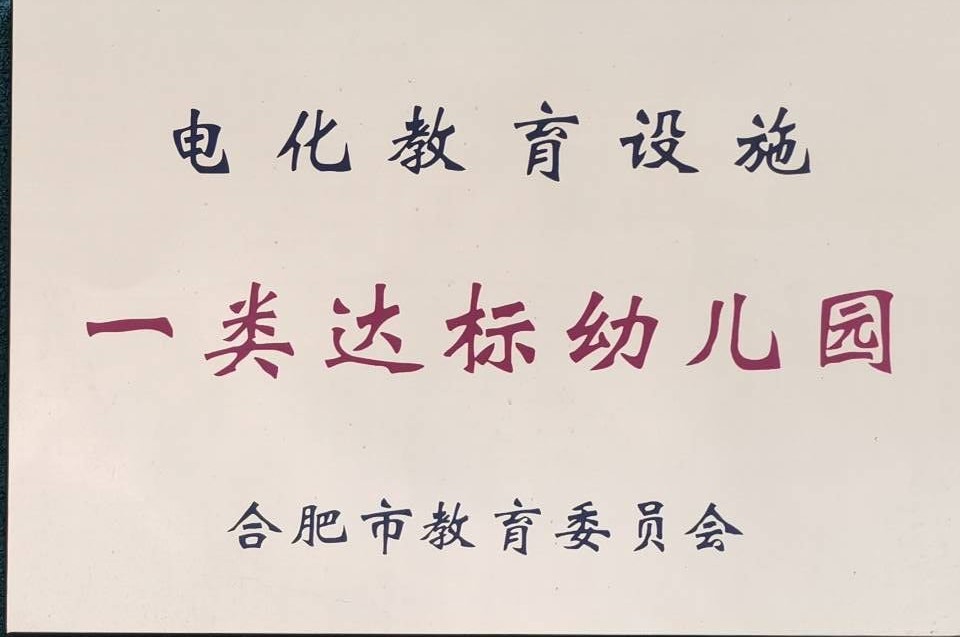 电化教育设施
一类达标幼儿园
合肥市教育委员会